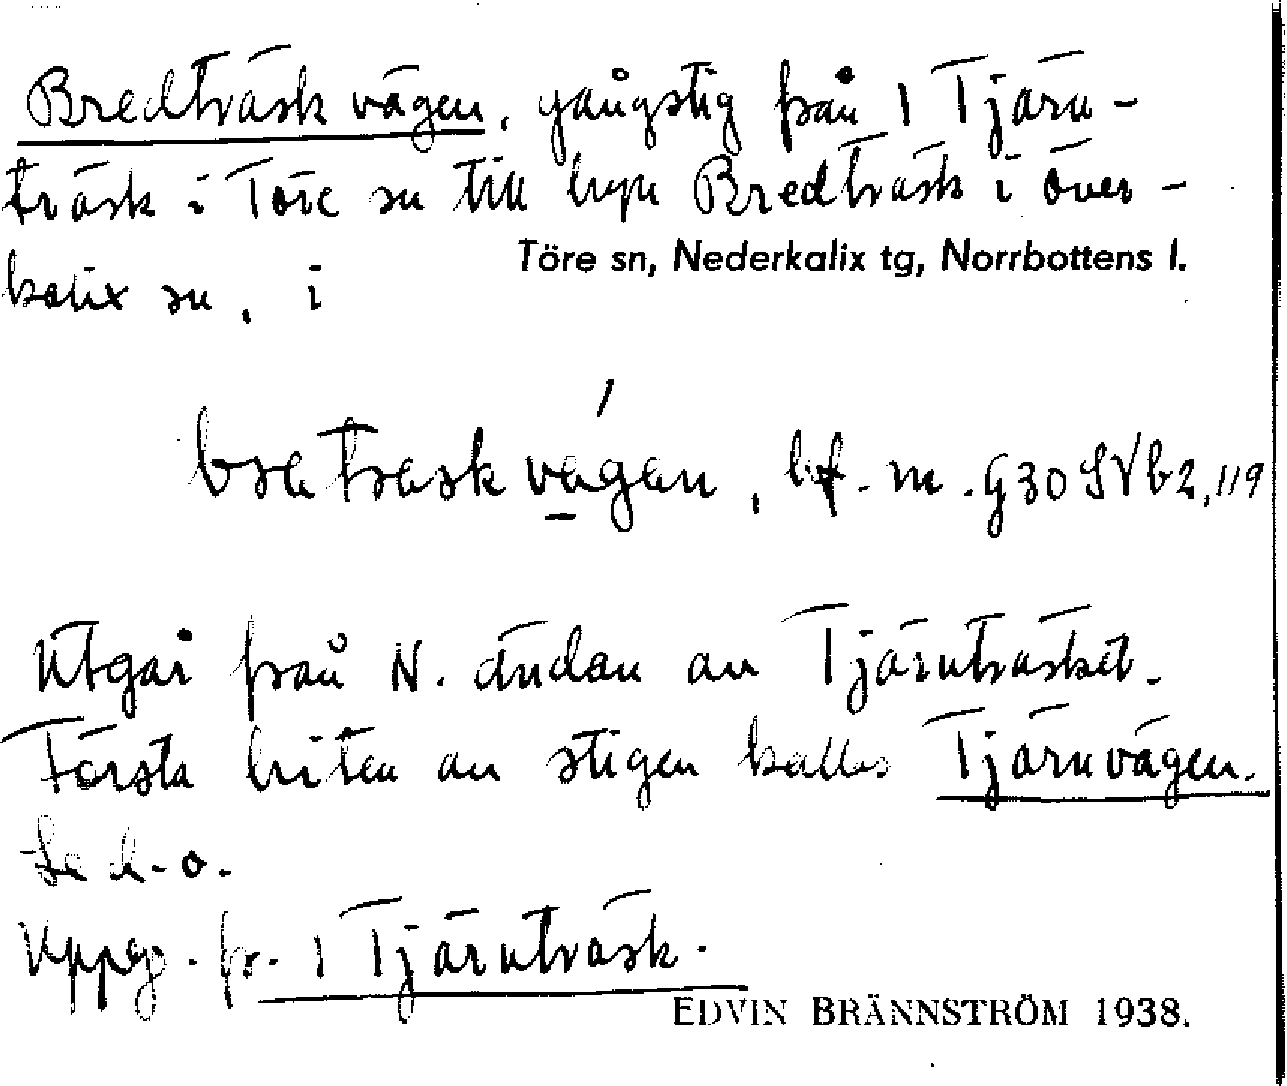 Bredträskvägen, gångstig från 1 Tjärn-
träsk i Töre sn till byn Bredträsk i Över-
Töre sn, Nederkalix tg, Norrbottens l.
kalix sn, i
bratraskvägan, bf. m. G30 SVb2,119
Utgår från N. ändan av Tjärnträsket.
Första biten av stigen kallas Tjärnvägen.
Se d. o.
Uppg. fr. 1 Tjärnträsk.
EDVIN BRÄNNSTRÖM 1938.